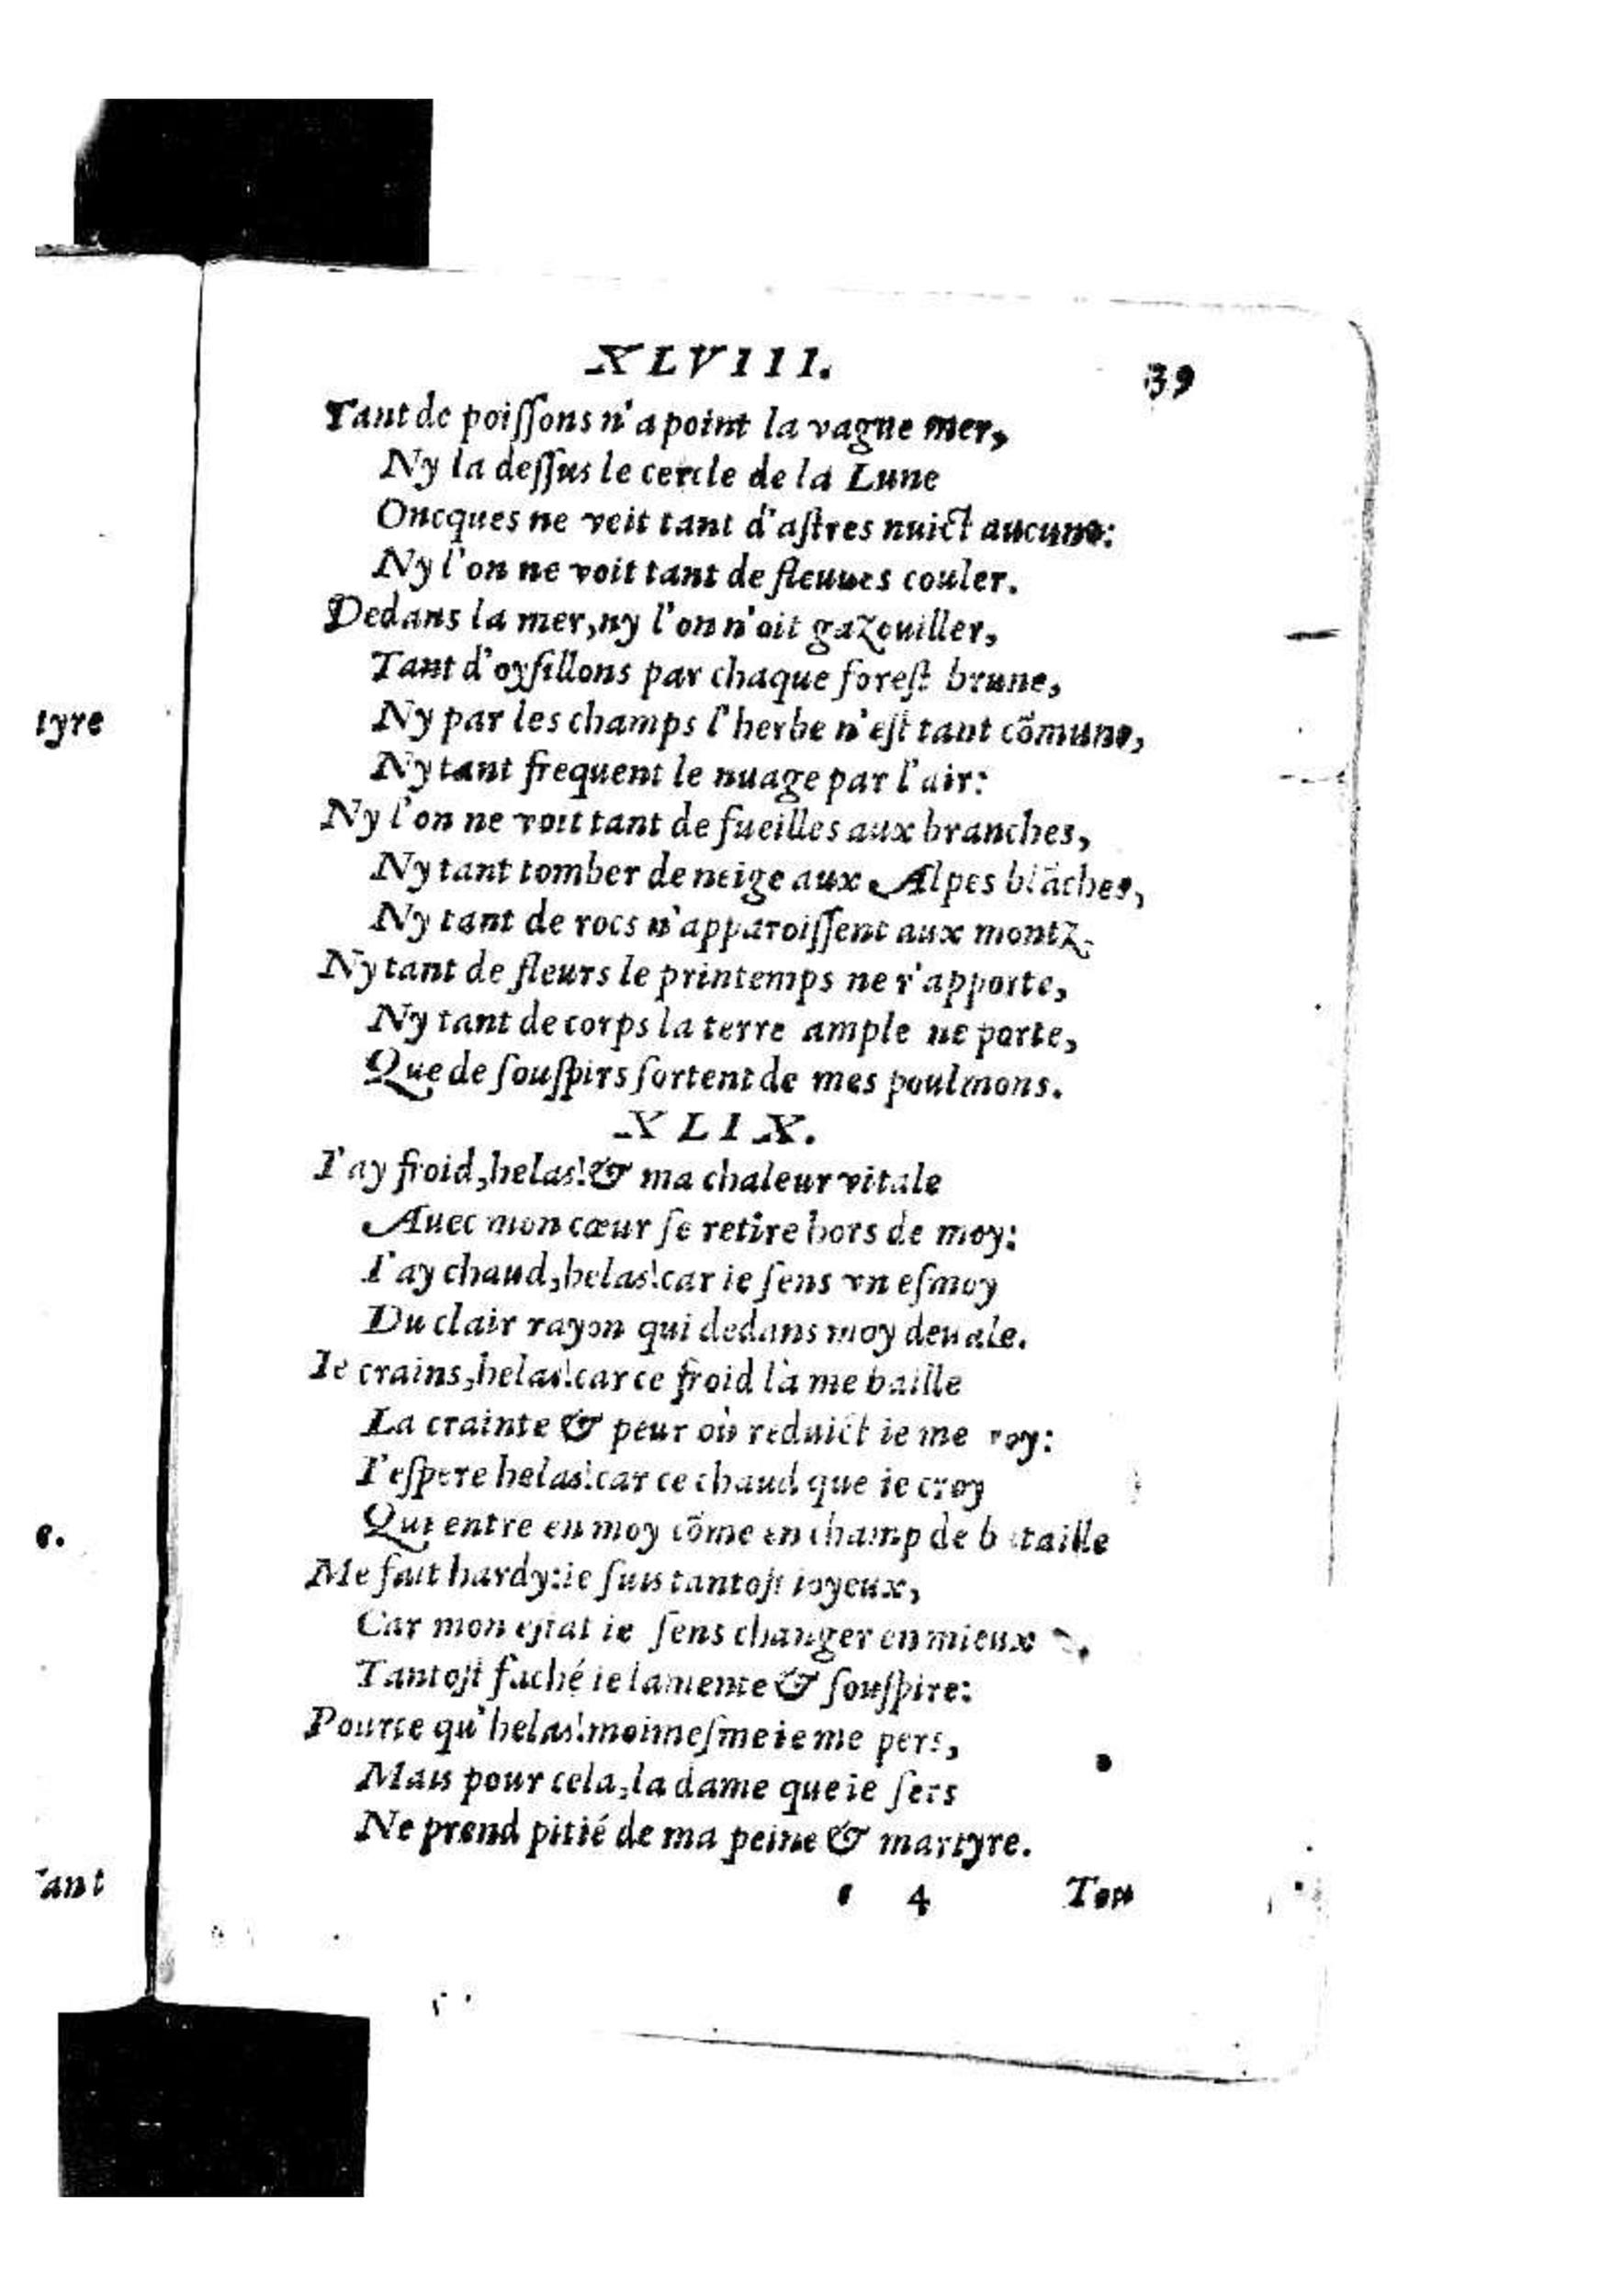 XLVIII.
39
Tant de poiſſons n'a point la vague mer,
Ny la deſſus le cercle de la Lune
Oncques ne veit tant d'aſtres nuict aucune:
Ny l'on ne voit tant de fleuues couler.
Dedans la mer, ny l'on n'oit gazouiller,
Tant d'oyſillons par chaque foreſt brune,
Ny par les champs l'herbe n'eſt tant cõmune,
Ny tant frequent le nuage par l'air:
Ny l'on ne voit tant de fueilles aux branches,
Ny tant tomber de neige aux Alpes blãches,
Ny tant de rocs n'apparoiſſent aux montz,
Ny tant de fleurs le printemps ne r'apporte,
Ny tant de corps la terre ample ne porte,
Que de ſouſpirs ſortent de mes poulmons.
XLIX.
I'ay froid, helas! & ma chaleur vitale
Auec mon cœur ſe retire hors de moy:
I'ay chaud, helas! car ie ſens vn eſmoy
Du clair rayon qui dedans moy deuale.
Ie crains, helas! car ce froid là me baille
La crainte & peur où reduict ie me voy:
I'eſpere helas! car ce chaud que ie croy
Qui entre en moy cõme en champ de bataille
Me fait hardy: ie ſuis tantoſt ioyeux,
Car mon eſtat ie ſens changer en mieux
Tantoſt faché ie lamente & ſouſpire:
Pource qu'helas! moimeſme ie me pers,
Mais pour cela, la dame que ie ſers
Ne prend pitié de ma peine & martyre.
4
tyre
e.
ant